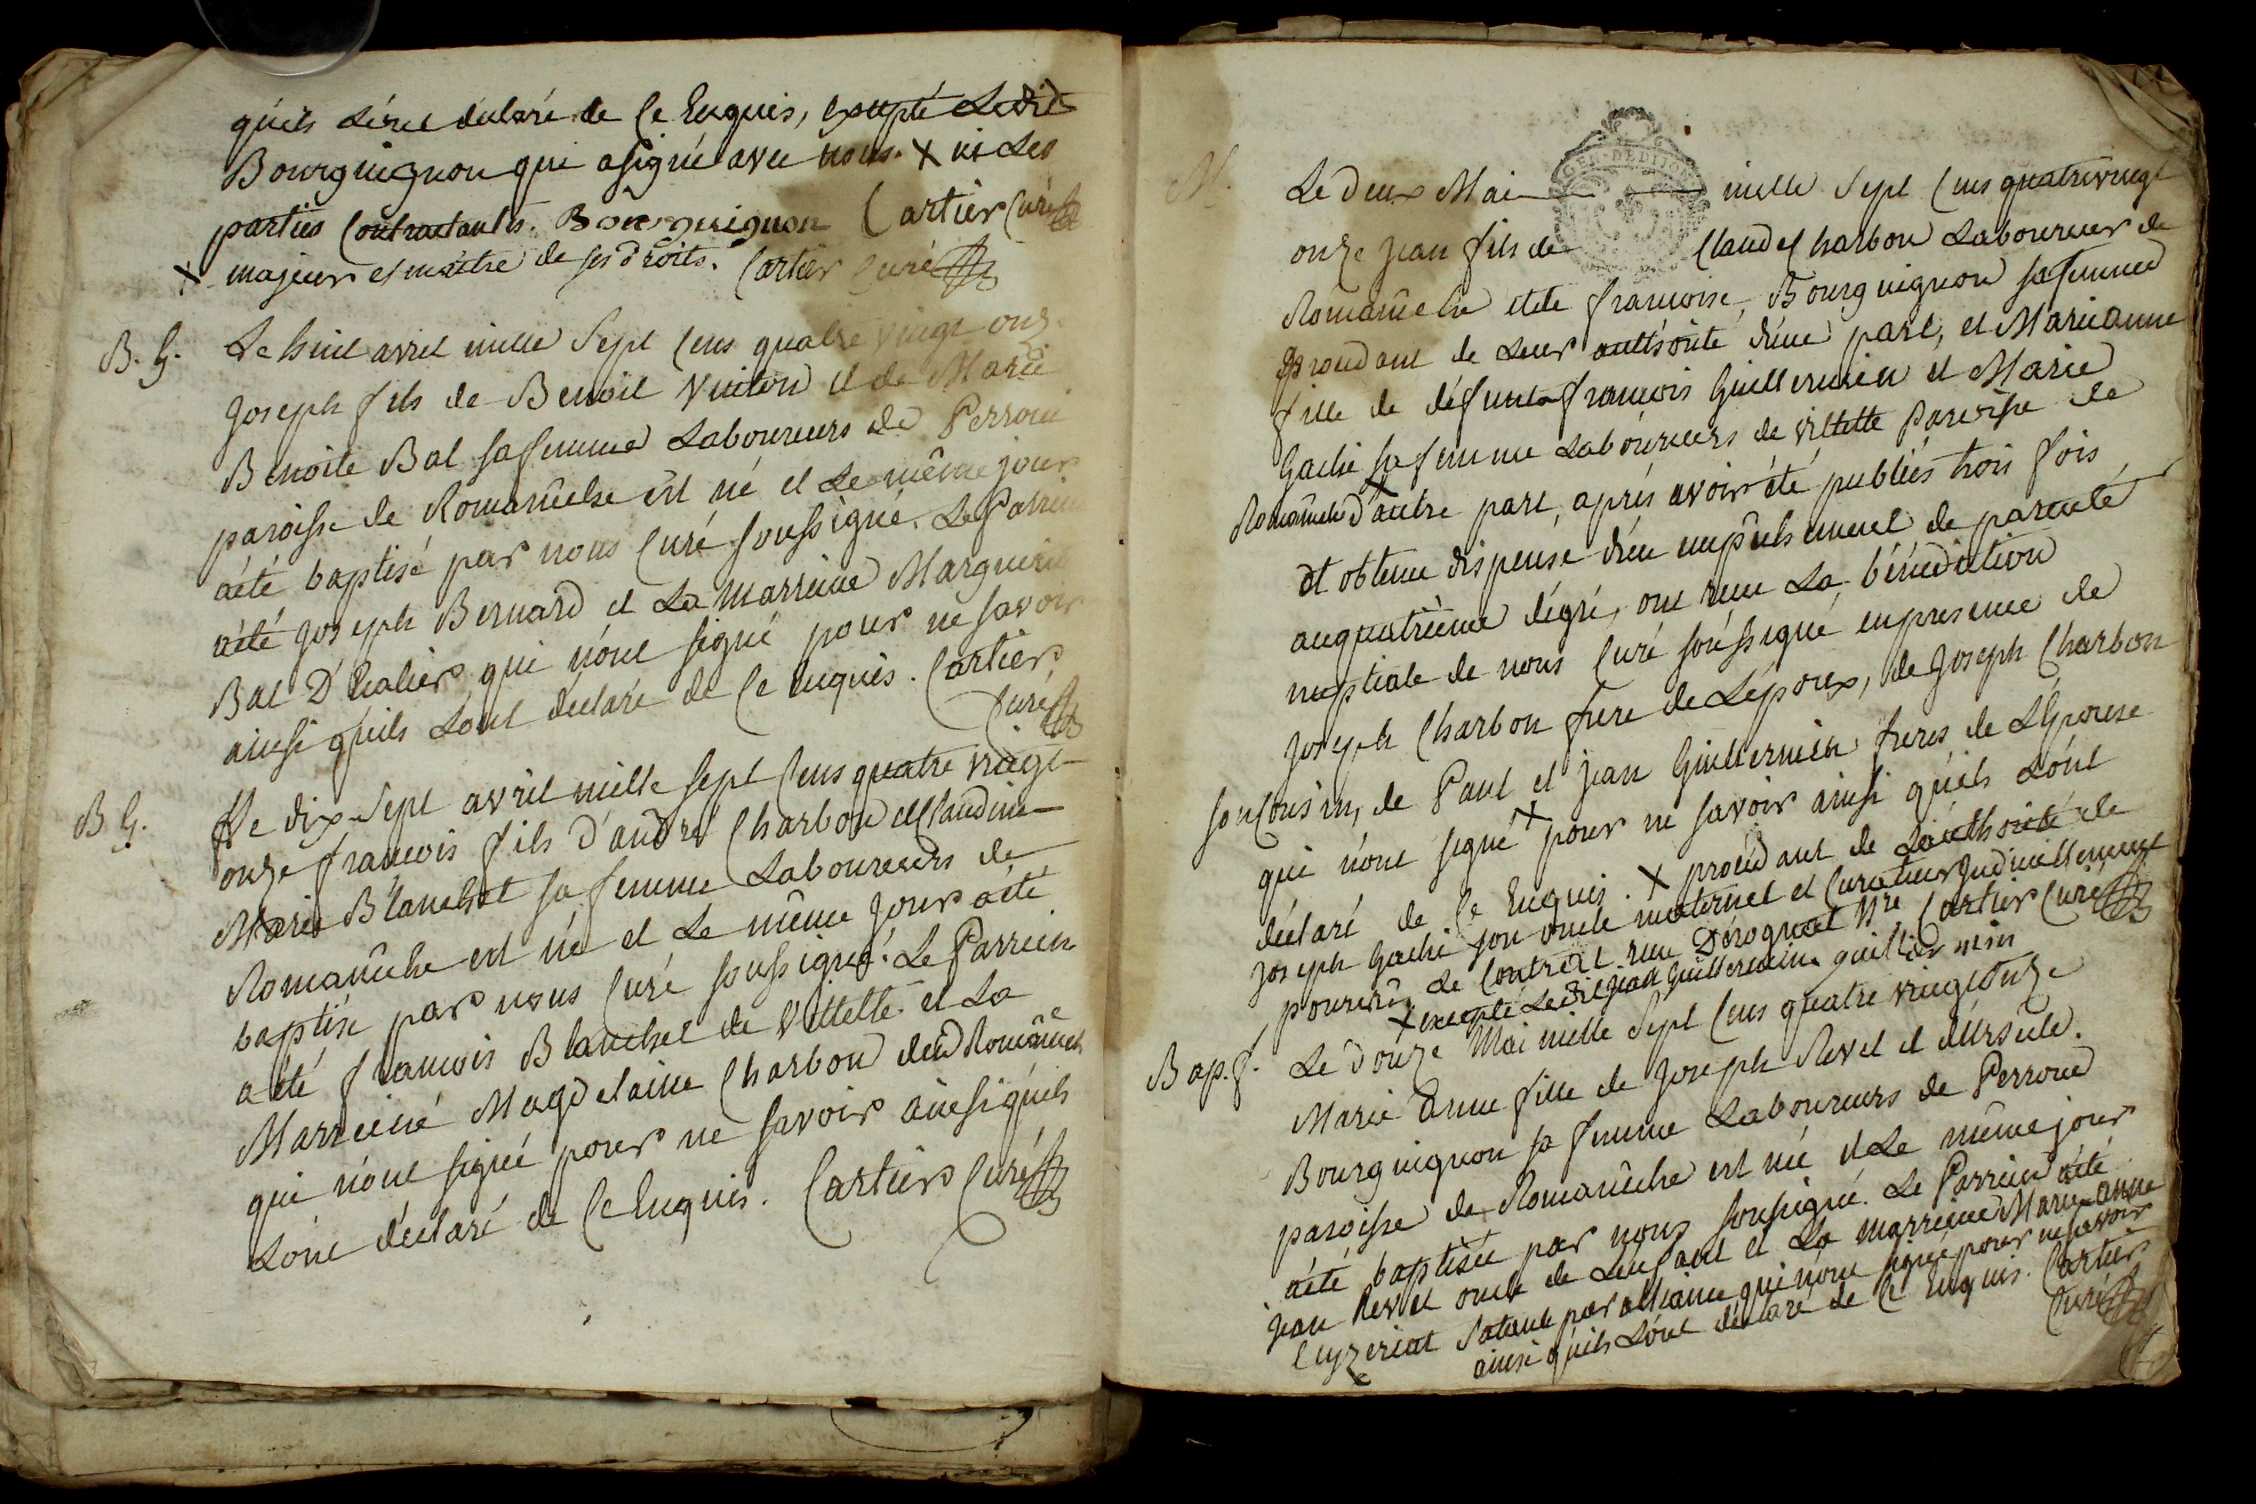 qu'ils L'ont déclaré de Ce Enquis, excepté Ledit
Bourguignon qui a signé avec nous. X ni Les
parties Contractantes. Bourguignon Cartier Curé
X majeur et maitre de ses droits. Cartier Curé
B. G. Le huit avril mille Sept Cens quatre vingt onze
Joseph fils de Benoit Vuiton et de Marie
Benoite Bal sa femme Laboureurs de Perroud
paroisse de Romanêche est né et Le même jour
a été baptisé par nous Curé soussigné. Le Parrein
a été Joseph Bernard et La Marreine Marguerite
Bal D'Chalier qui n'ont signé pour ne savoir
ainsi qu'ils L'ont déclaré de Ce enquis. Cartier
Curé
B G. Le dix-Sept avril mille sept Cens quatre vingt
onze françois fils d'andré Charbon et Claudine
Marie Blanchet sa femme Laboureurs de
Romanêche est né et Le même jour a été
baptisé par nous Curé soussigné. Le Parrein
a été françois Blanchet de Villette et La
Marreine Magdelaine Charbon dud Romanêche
qui n'ont signé pour ne savoir ainsi qu'ils
L'ont déclaré de Ce Enquis. Cartier Curé
M. Le deux Mai mille Sept Cens quatrevingt
onze jean fils de Claude Charbon Laboureur de
Romanêche et de francoise Bourguignon sa femme
procédant de Leur authorité d'une part, et Marieanne
fille de défunt françois Guillermin et Marie
Gaché sa femme Laboureurs de villette Paroisse de
Romanêche X d'autre part, aprés avoir été publiés trois fois
et obtenu dispense d'un empêchement de parenté
au quatrième dégré, ont reçu La bénédiction
nuptiale de nous Curé soussigné en presence de
Joseph Charbon frere de L'époux, de Joseph Charbon
son Cousin, de Paul et jean Guillermin freres de L'Epouse
qui n'ont signé X pour ne savoir ainsi qu'ils L'ont
déclaré de Ce Enquis. X procédant de L'authorité de
Joseph Gaché son oncle maternel et Curateur Judiciellement
pourvu, de Contract reçu Dérognat Nre Cartier Curé
X excepté Ledit jean Guillermin. guillermin
Bap. f. Le douze Mai mille Sept Cens quatre vingt onze
Marie anne fille de Joseph Revel et d'Ursule
Bourguignon sa femme Laboureurs de Perroud
paroisse de Romanêche est née et Le même jour
a été baptisée par nous soussigné. Le Parrein a été
jean Revel oncle de L'enfant et La marreine Marie-anne
Ceyzeriat sa tante par alliance qui n'ont signé pour ne savoir
ainsi qu'ils L'ont déclaré de Ce Enquis. Cartier
Curé